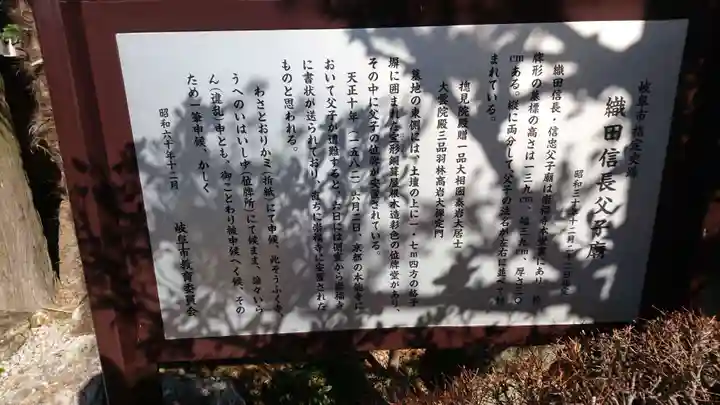 岐阜市指定史跡
織田信長父子廟
昭和三十年十二月二十二日指定
織田信長・信忠父子廟は崇福寺本堂裏にあり、
碑形の墓標の高さは一三九cm、幅三九cm、厚さ三〇
cmある。縦に両分して父子の法名が左右に並べて刻
まれている。
捴見院殿贈一品大相國泰岩大居士
大雲院殿三品羽林高岩大禅定門
墓地の東側には、土壇の上に一・七m四方の格子
塀に囲まれた
屋根木造彩色の位牌堂があり、
その中に父子の位牌が安置されている。
天正十年（一五八二）六月二日、京都の本能寺に
おいて父子が遭難すると、お
側室から崇福寺
に書状が送られており、直ちに崇福寺に安置された
ものと思われる。
わざとおりかミ（折紙）にて申候、此そうふく寺、
うへのいはいし中（位牌所）にて候まま、誰々いら
ん（違乱）申とも、御ことわり被申候へく候、その
ため一筆申候、かしく
昭和六十年十二月
岐阜市教育委員会